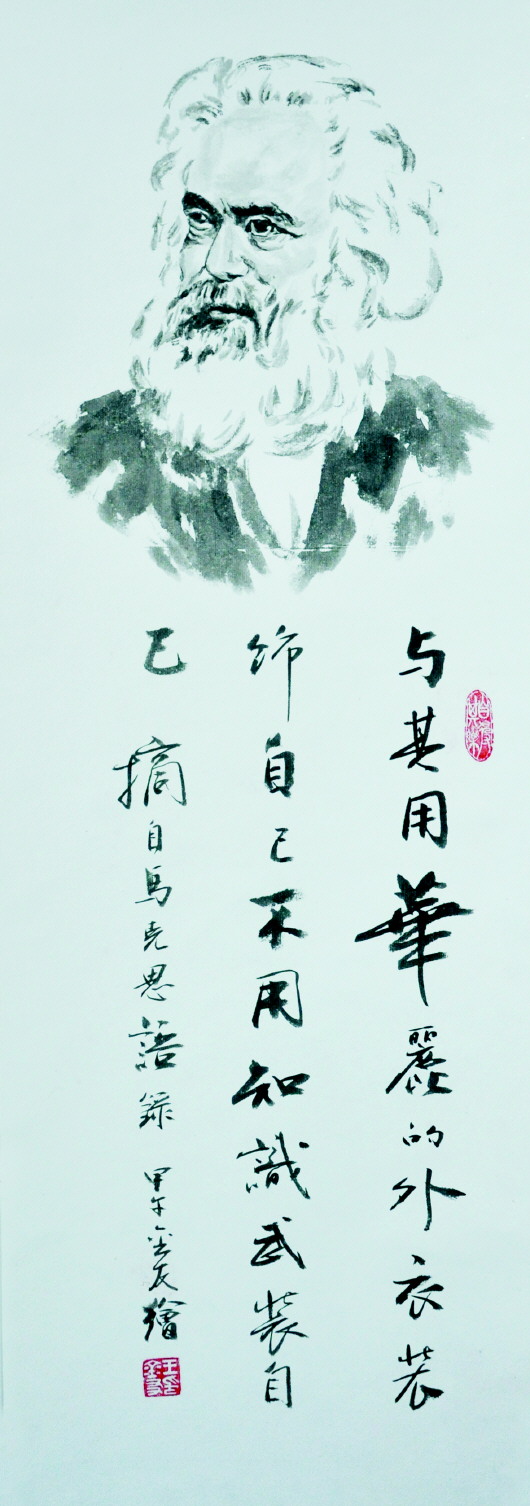 与其用華麗的外衣装
饰自己不用知識武装自
己 摘自馬克思語录 甲午金友繪